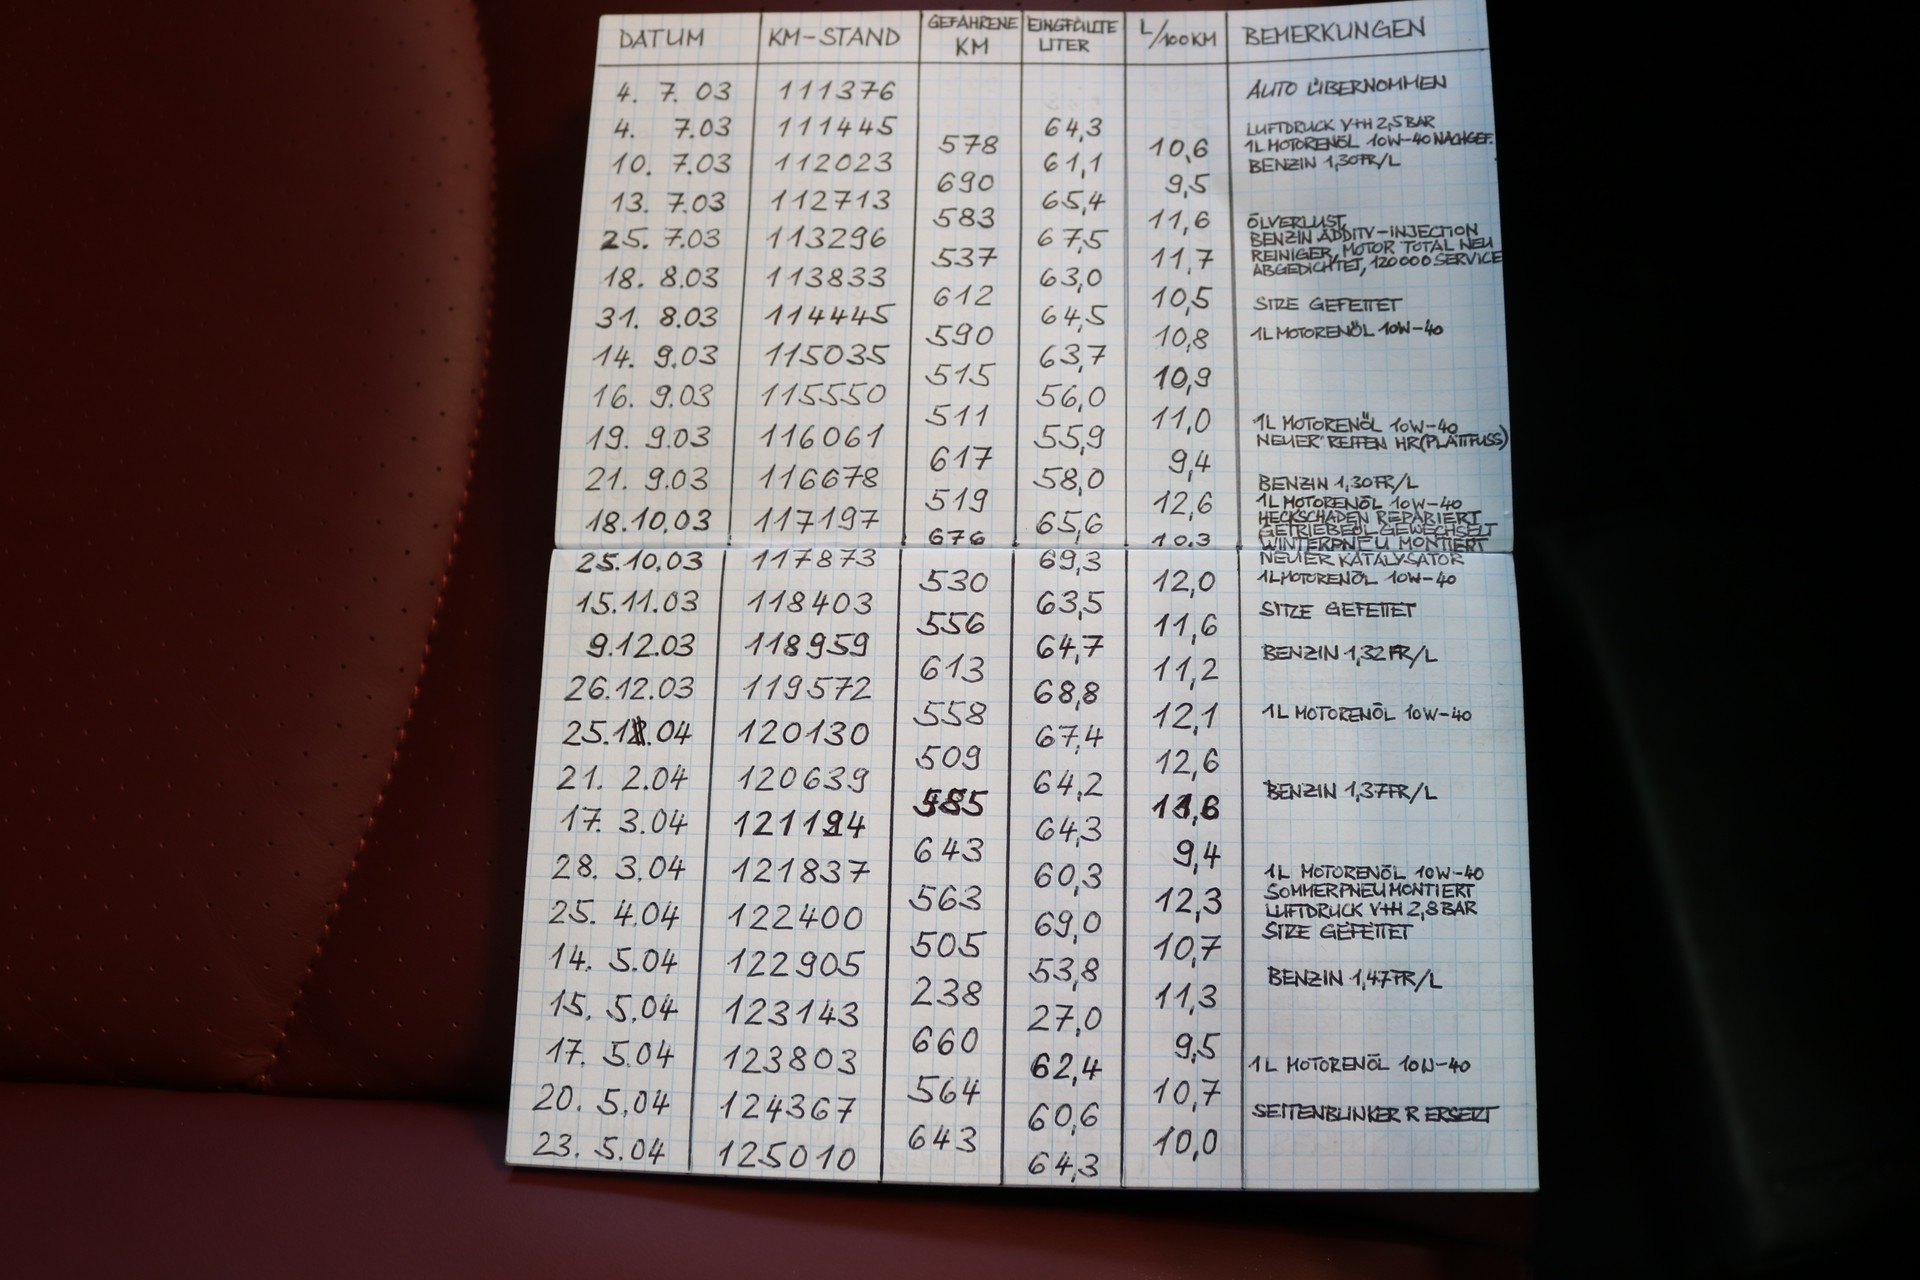 DATUM KM-STAND GEFAHRENE KM EINGEFÜLLTE LITER L/100KM BEMERKUNGEN
4. 7. 03 111376 AUTO ÜBERNOMMEN
4. 7.03 111445 64,3 LUFTDRUCK V+H 2,5 BAR
578 10,6 1L MOTORENÖL 10W-40 NACHGEF.
10. 7.03 112023 61,1 BENZIN 1,30FR/L
690 9,5
13. 7.03 112713 65,4
583 11,6 ÖLVERLUST,
25. 7.03 113296 67,5 BENZIN ADDITV-INJECTION
REINIGER, MOTOR TOTAL NEU
537 11,7 ABGEDICHTET, 120000 SERVICE
18. 8.03 113833 63,0
612 10,5 SITZE GEFETTET
31. 8.03 114445 64,5 1L MOTORENÖL 10W-40
590 10,8
14. 9.03 115035 63,7
515 10,9
16. 9.03 115550 56,0
511 11,0 1L MOTORENÖL 10W-40
19. 9.03 116061 55,9 NEUER REIFEN HR(PLATTFUSS)
617 9,4
21. 9.03 116678 58,0 BENZIN 1,30FR/L
519 12,6 1L MOTORENÖL 10W-40
18.10.03 117197 65,6 HECKSCHADEN REPARIERT
GETRIEBEÖL GEWECHSELT
676 10.3 WINTERPNEU MONTIERT
25.10.03 117873 69,3 NEUER KATALYSATOR
530 12,0 1L MOTORENÖL 10W-40
15.11.03 118403 63,5 SITZE GEFETTET
556 11,6
9.12.03 118959 64,7 BENZIN 1,32FR/L
613 11,2
26.12.03 119572 68,8
558 12,1 1L MOTORENÖL 10W-40
25.1.04 120130 67,4
509 12,6
21. 2.04 120639 64,2 BENZIN 1,37FR/L
17. 3.04 121194 64,3
643 9,4
28. 3.04 121837 60,3 1L MOTORENÖL 10W-40
SOMMERPNEU MONTIERT
563 12,3 LUFTDRUCK V+H 2,8 BAR
25. 4.04 122400 69,0 SITZE GEFETTET
505 10,7
14. 5.04 122905 53,8 BENZIN 1,47FR/L
238 11,3
15. 5.04 123143 27,0
660 9,5
17. 5.04 123803 62,4 1L MOTORENÖL 10W-40
564 10,7
20. 5.04 124367 60,6 SEITENBLINKER R ERSETZT
643 10,0
23. 5.04 125010 64,3